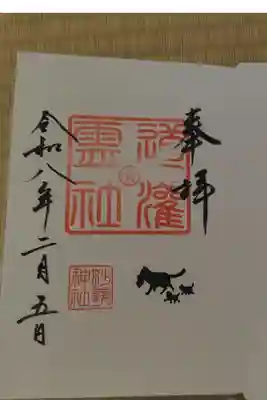 奉拝
道灌
霊社
令和八年二月五日
神社